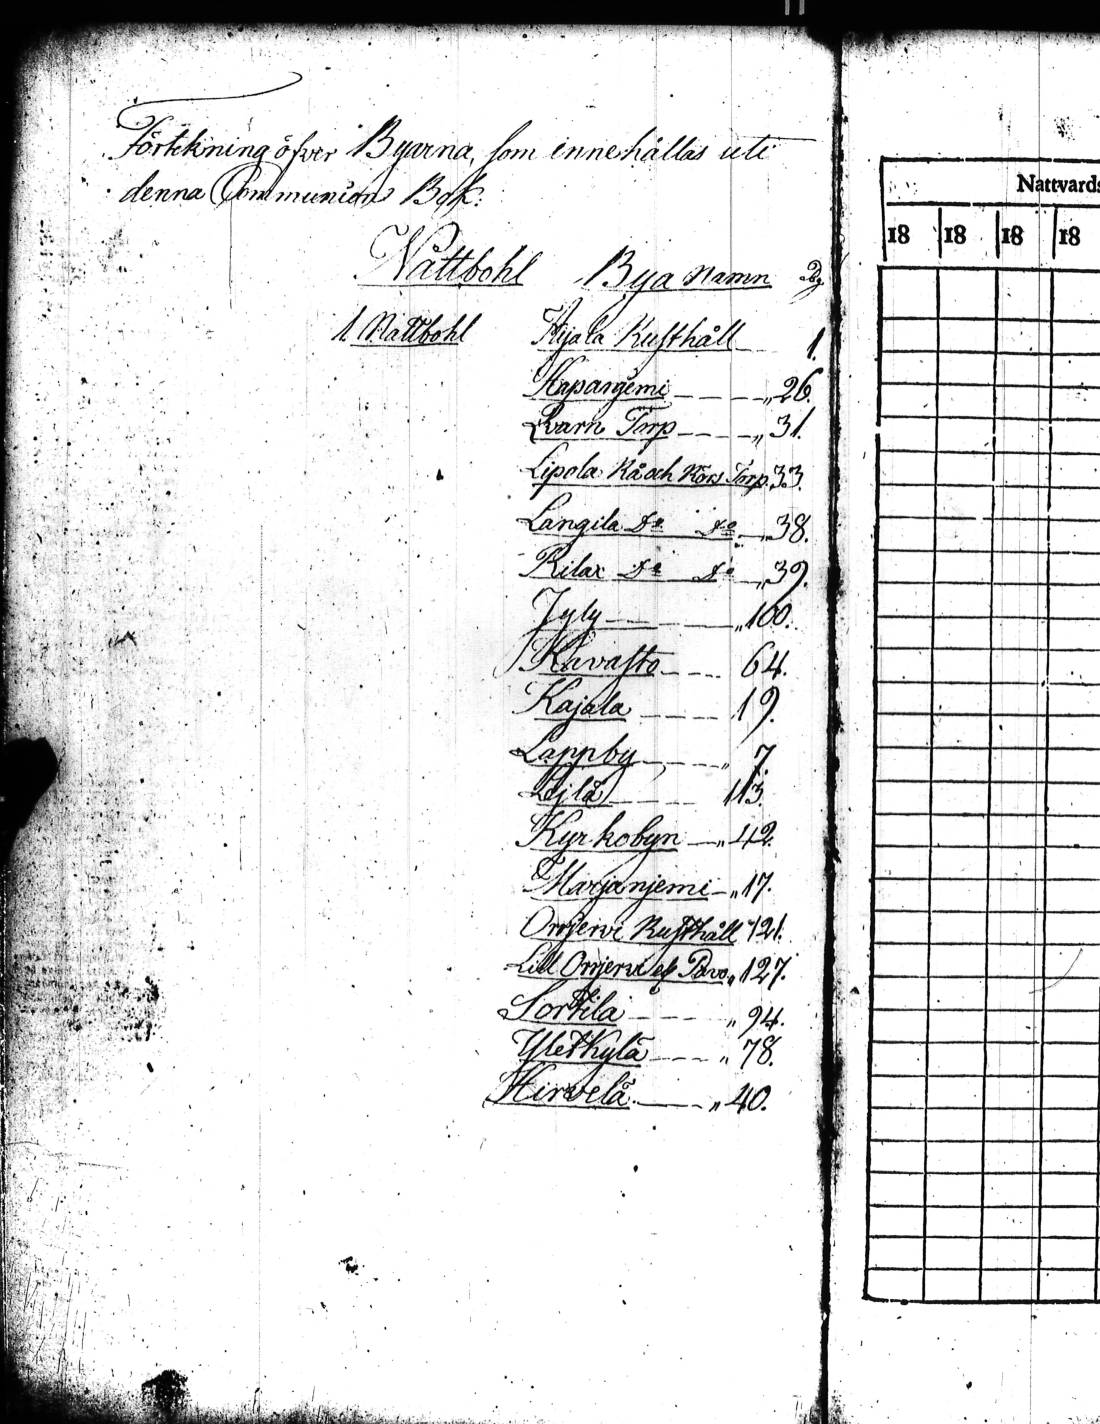 Förtekning öfver Byarna, som innehållas uti
denna Communion Bok:
Nattbohl Bya Namn
1 Nattbohl Kijala Rusthåll 1.
Hapaniemi „ 26.
Qvarn Torp „ 31.
Lipola Rå och Rörs Torp. 33.
Langila Do Do „ 38.
Rilax Do Do „ 39.
Jyly „ 100.
Kavasto 64.
Kajala 19.
Lappby „ 7.
Lejlä 113.
Kyrkobyn „ 42.
Marjanjemi „ 17.
Orrjervi Rusthåll 121.
Lill Orrjervi el. Pavo „ 127.
Sortila „ 94.
Yletkylä „ 78.
Hirvelä „ 40.
Nattvards
18 18 18 18